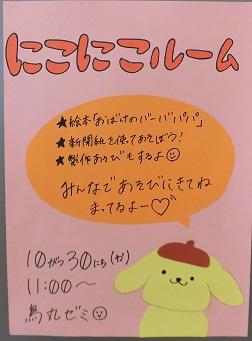 にこにこルーム
★絵本「おばけのバーバパパ」
★新聞紙を使ってあそぼう!
★製作あそびもするよ☺
みんなであそびにきてね
まってるよー♡
10がつ30にち(か)
11:00〜
鳥丸ゼミ☺